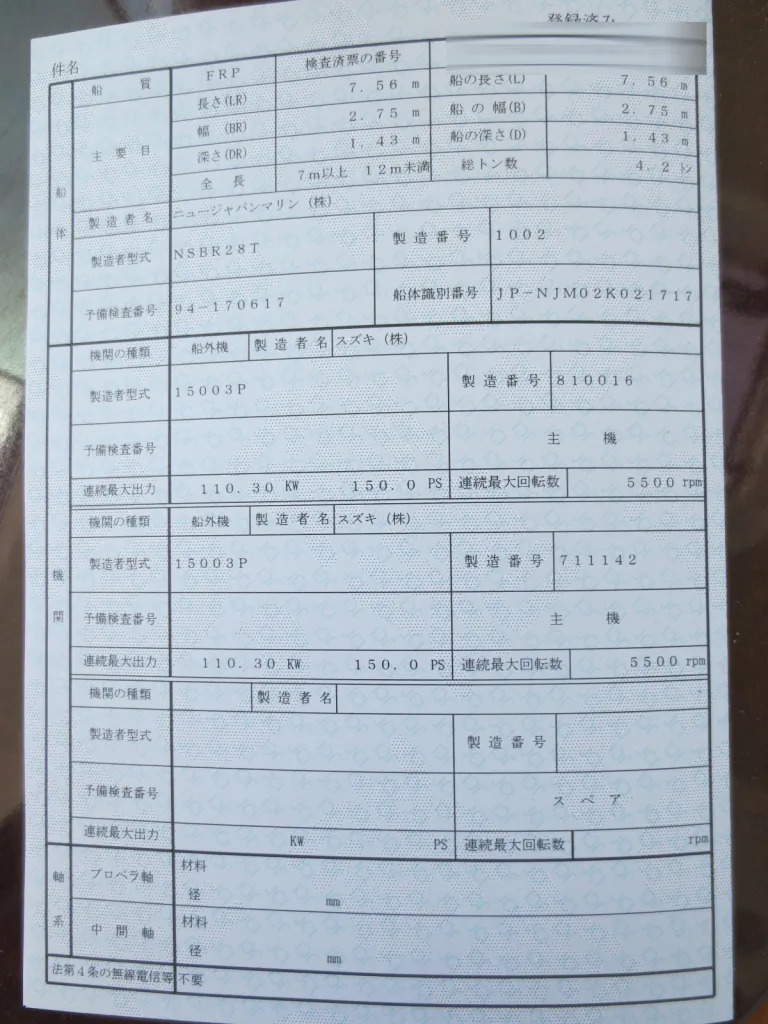 登録済み
件名
船体
船質 FRP 検査済票の番号
主要目 長さ(LR) 7.56 m 船の長さ(L) 7.56 m
幅 (BR) 2.75 m 船の幅(B) 2.75 m
深さ(DR) 1.43 m 船の深さ(D) 1.43 m
全長 7m以上 12m未満 総トン数 4.2 トン
製造者名 ニュージャパンマリン(株)
製造者型式 NSBR28T 製造番号 1002
予備検査番号 94-170617 船体識別番号 JP-NJM02K021717
機関
機関の種類 船外機 製造者名 スズキ(株)
製造者型式 15003P 製造番号 810016
予備検査番号 主機
連続最大出力 110.30 KW 150.0 PS 連続最大回転数 5500 rpm
機関の種類 船外機 製造者名 スズキ(株)
製造者型式 15003P 製造番号 711142
予備検査番号 主機
連続最大出力 110.30 KW 150.0 PS 連続最大回転数 5500 rpm
機関の種類 製造者名
製造者型式 製造番号
予備検査番号 スペア
連続最大出力 KW PS 連続最大回転数 rpm
軸系
プロペラ軸 材料
径 mm
中間軸 材料
径 mm
法第4条の無線電信等 不要